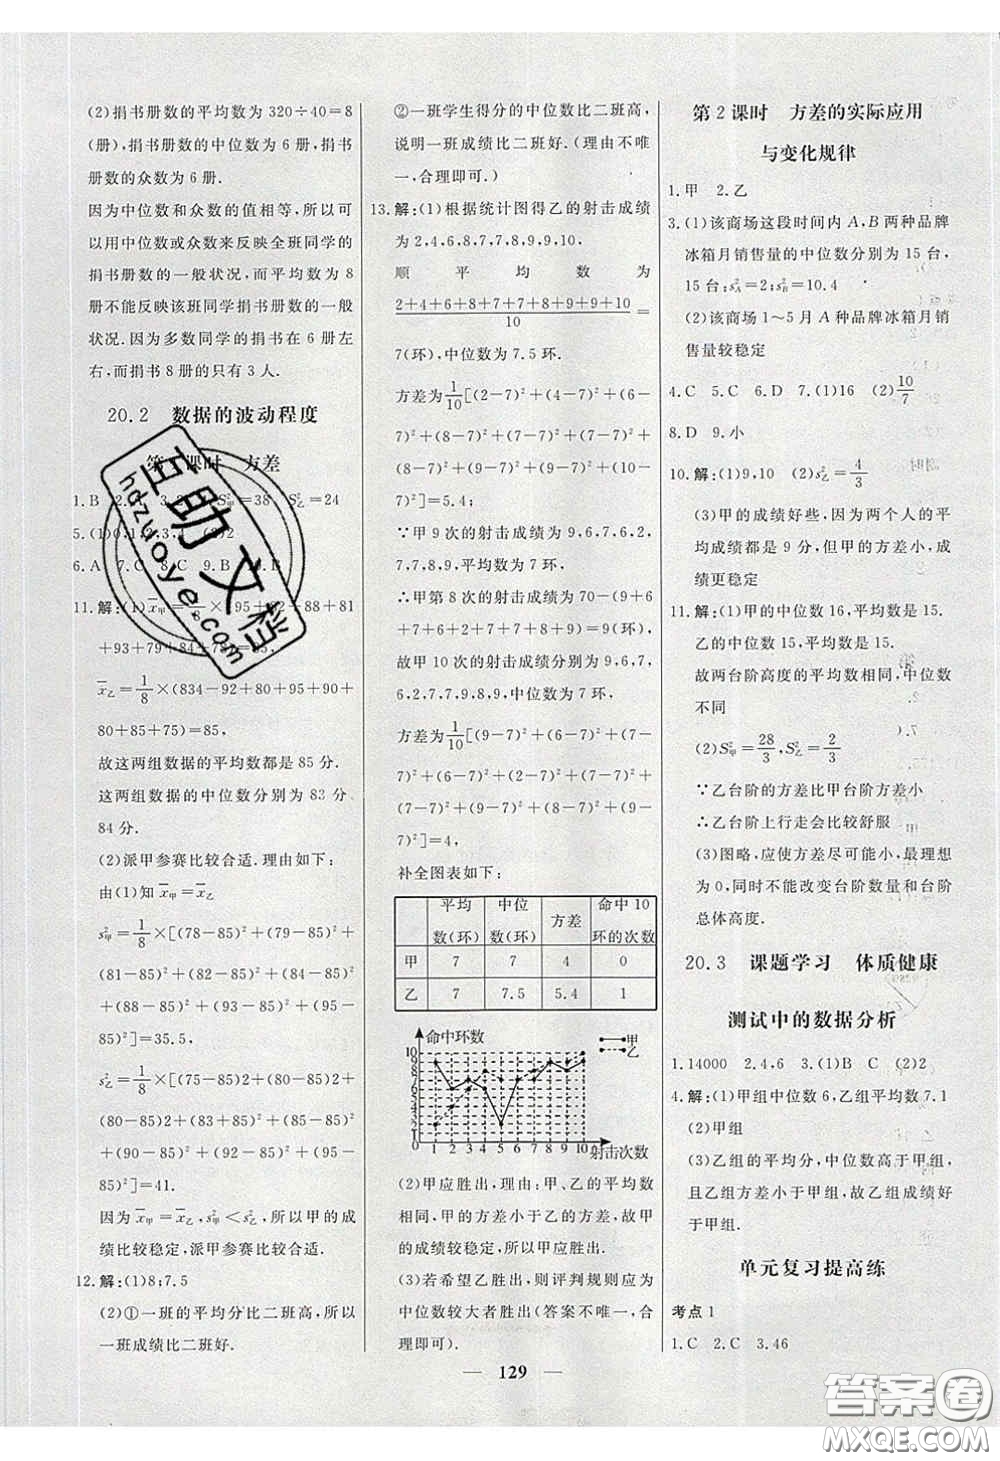 (2)捐书册数的平均数为 320÷40=8
(册),捐书册数的中位数为 6 册,捐书
册数的众数为 6 册.
因为中位数和众数的值相等,所以可
以用中位数或众数来反映全班同学的
捐书册数的一般状况,而平均数为 8
册不能反映该班同学捐书册数的一般
状况.因为多数同学的捐书在 6 册左
右,而捐书 8 册的只有 3 人.
20.2 数据的波动程度
课时 方差
1.B
=38 S²乙=24
6.A 7.C 8.
11.解:(1)
+93+79+84+
x̄乙=1/8×(834-92+80+85+90+
80+85+75)=85,
故这两组数据的平均数都是 85 分.
这两组数据的中位数分别为 83 分、
84 分.
(2)派甲参赛比较合适.理由如下:
由(1)知 x̄甲=x̄乙
s²甲=1/8×[(78-85)²+(81-85)²+
(81-85)²+(82-85)²+(84-85)²
+(88-85)²+(93-85)²+(95-
85)²]=35.5,
s²乙=1/8×[(75-85)²+(80-85)²+
(80-85)²+(83-85)²+(85-85)²
+(90-85)²+(92-85)²+(95-
85)²]=41.
因为 x̄甲=x̄乙,s²甲<s²乙,所以甲的成
绩比较稳定,派甲参赛比较合适.
12.解:(1)8;7.5
(2)①一班的平均分比二班高,所以
一班成绩比二班好.
②一班学生得分的中位数比二班高,
说明一班成绩比二班好.(理由不唯
一,合理即可.)
13.解:(1)根据统计图得乙的射击成绩
为 2,4,6,8,7,7,8,9,9,10,
顺 平 均 数 为
(2+4+6+8+7+7+8+9+9+10)/10=
7(环),中位数为 7.5 环.
方差为1/10[(2-7)²+(4-7)²+(6-
7)²+(8-7)²+(7-7)²+(7-7)²+
(8-7)²+(9-7)²+(9-7)²+(10-
7)²]=5.4;
∵甲 9 次的射击成绩为 9,6,7,6,2,
7,7,8,9,平均数为 7 环,
∴甲第 8 次的射击成绩为 70-(9+6
+7+6+2+7+7+8+9)=9(环),
故甲 10 次的射击成绩分别为 9,6,7,
6,2,7,7,8,9,9,中位数为 7 环,
方差为1/10[(9-7)²+(6-7)²+(7-
7)²+(6-7)²+(2-7)²+(7-7)²+
(7-7)²+(9-7)²+(8-7)²+(9-
7)²]=4,
补全图表如下:
平均数(环) 中位数(环) 方差 命中 10 环的次数
甲 7 7 4 0
乙 7 7.5 5.4 1
命中环数
甲
乙
10
9
8
7
6
5
4
3
2
1
0
1 2 3 4 5 6 7 8 9 10 射击次数
(2)甲应胜出,理由:甲、乙的平均数
相同,甲的方差小于乙的方差,故甲
的成绩较稳定,所以甲应胜出.
(3)若希望乙胜出,则评判规则应为
中位数较大者胜出(答案不唯一,合
理即可).
第 2 课时 方差的实际应用
与变化规律
1.甲 2.乙
3.(1)该商场这段时间内 A,B 两种品牌
冰箱月销售量的中位数分别为 15 台,
15 台;s²A=2;s²B=10.4
(2)该商场 1~5 月 A 种品牌冰箱月销
售量较稳定
4.C 5.C 6.D 7.(1)16 (2)10/7
8.D 9.小
10.解:(1)9,10 (2)s²乙=4/3
(3)甲的成绩好些,因为两个人的平
均成绩都是 9 分,但甲的方差小,成
绩更稳定
11.解:(1)甲的中位数 16,平均数是 15.
乙的中位数 15,平均数是 15.
故两台阶高度的平均数相同,中位数
不同
(2)S²甲=28/3,S²乙=2/3
∵乙台阶的方差比甲台阶方差小
∴乙台阶上行走会比较舒服
(3)图略,应使方差尽可能小,最理想
为 0,同时不能改变台阶数量和台阶
总体高度.
20.3 课题学习 体质健康
测试中的数据分析
1.14000 2.4,6 3.(1)B C (2)2
4.解:(1)甲组中位数 6,乙组平均数 7.1
(2)甲组
(3)乙组的平均分,中位数高于甲组,
且乙组方差小于甲组,故乙组成绩好
于甲组.
单元复习提高练
考点 1
1.C 2.C 3.46
— 129 —
互助文档
hdzuoye.com
答案圈
MXQE.COM